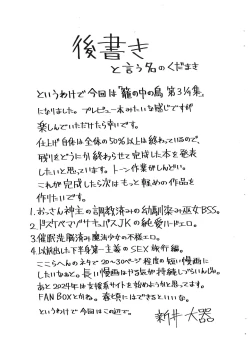 後書き
と言う名のくだまき
というわけで今回は「籠の中の鳥 第3¼集」
になりました。プレビュー本みたいな感じですが
楽しんでいただけたら幸いです。
仕上げ自体は全体の50%以上は終わっているので、
残りをどうにか終わらせて完成した本を発表
したいと思っています。トーン作業がしんどい。
これが完成したら次はもっと軽めの作品を
作りたいです。
1.おっさん神主の調教済みの幼馴染み巫女BSS。
JKの純愛
3.催眠洗脳済み魔法少女の
4.
ここらへんのネタで20〜30ページ程度の短い漫画に
したいなあと。長い漫画はやる気が持続しづらいんね。
あと2024年は支援系サイトを始めようかと思ってます。
FANBOXとかね。春頃にはできるといいな。
というわけで今回はこの辺で。
新井大器